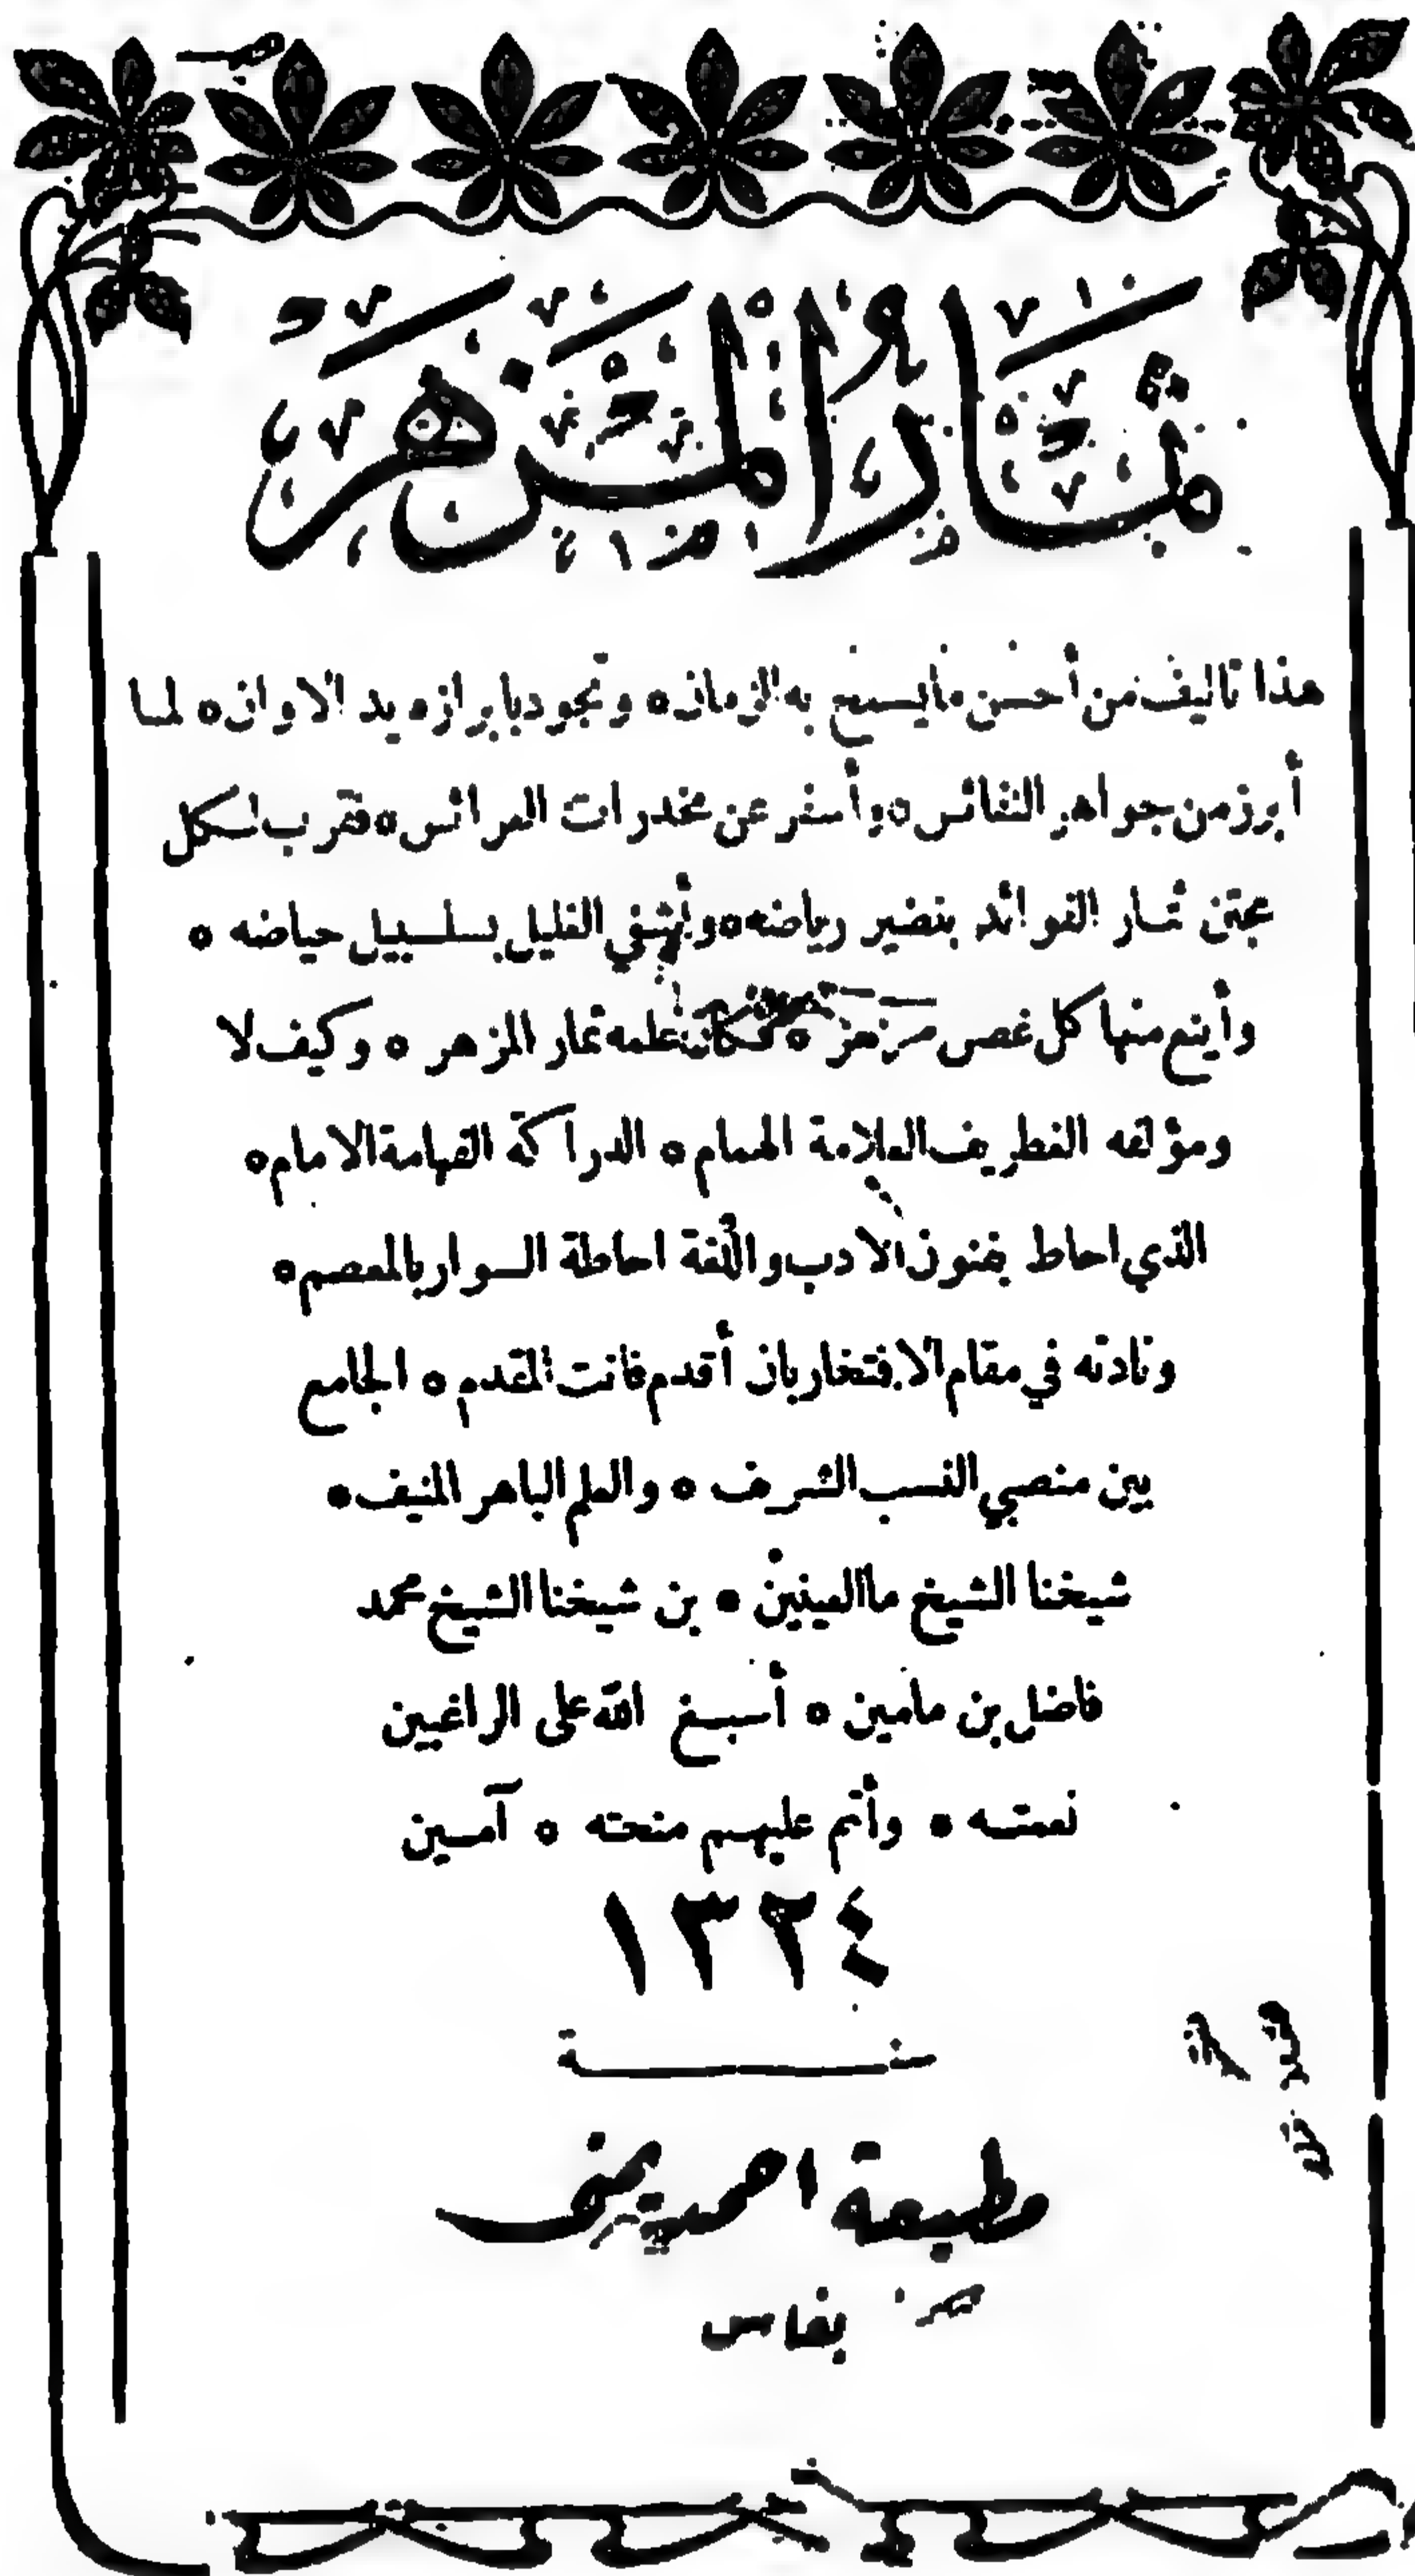 ثمار المزهر
هذا تاليف من أحسن ما يسمح به الزمان ۞ وتجود بابرازه يد الاوان ۞ لما
أبرز من جواهر النفائس ۞ وأسفر عن مخدرات العرائس ۞ فقرب لكل
مجتن ثمار الفوائد بنضير رياضه ۞ وأشفي الغليل بسلسبيل حياضه ۞
وأينع منها كل غصن مزهر ۞ ثمار المزهر ۞ وكيف لا
ومؤلفه الغطريف العلامة الهمام ۞ الدراكة الفهامة الامام ۞
الذي احاط بفنون الادب واللغة احاطة السوار بالمعصم ۞
ونادته في مقام الافتخار بان أقدم فانت المقدم ۞ الجامع
بين منصبي النسب الشرف ۞ والعلم الباهر المنيف ۞
شيخنا الشيخ ما العينين ۞ بن شيخنا الشيخ محمد
فاضل بن مامين ۞ أسبغ الله على الراغبين
نعمته ۞ وأتم عليهم منحته ۞ آمين
١٣٢٤
سنة
مطبعة احمد يمنى
بفاس